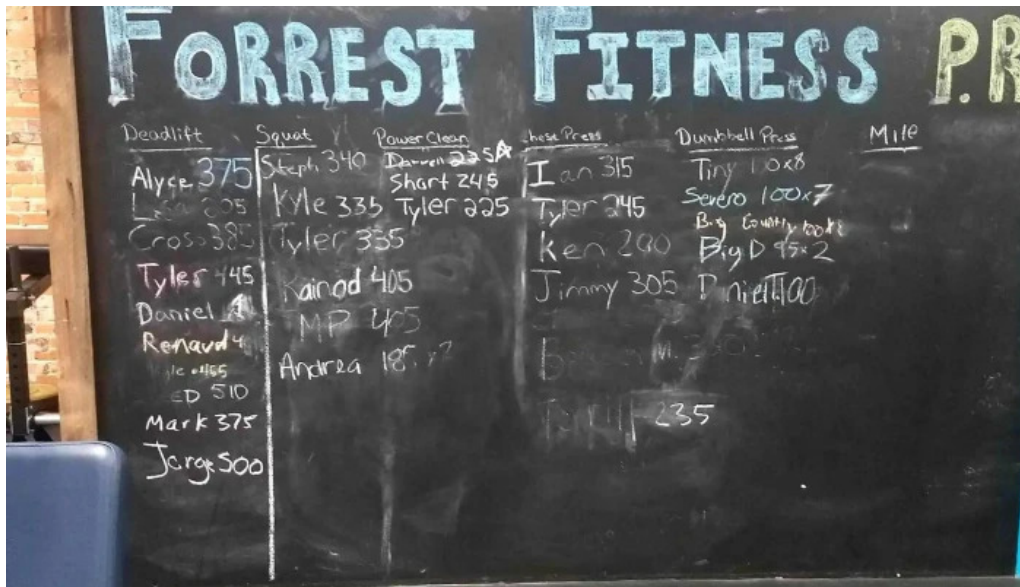 FORREST FITNESS P.R
Deadlift
Alyce 375
Cross 385
Tyler 445
Daniel
Renaud 4
ED 510
Mark 375
Jorge 500
Squat
Steph 340
Kyle 335
Tyler 335
Kainod 405
TMP 405
Andrea 185 x2
Power Clean
Darrell 225
Short 245
Tyler 225
Press
Ian 315
Tyler 245
Ken 290
Jimmy 305
235
Dumbbell Press
Tiny x8
Severo 100x7
Big Country
Big D 95x2
Daniel 100
Mile